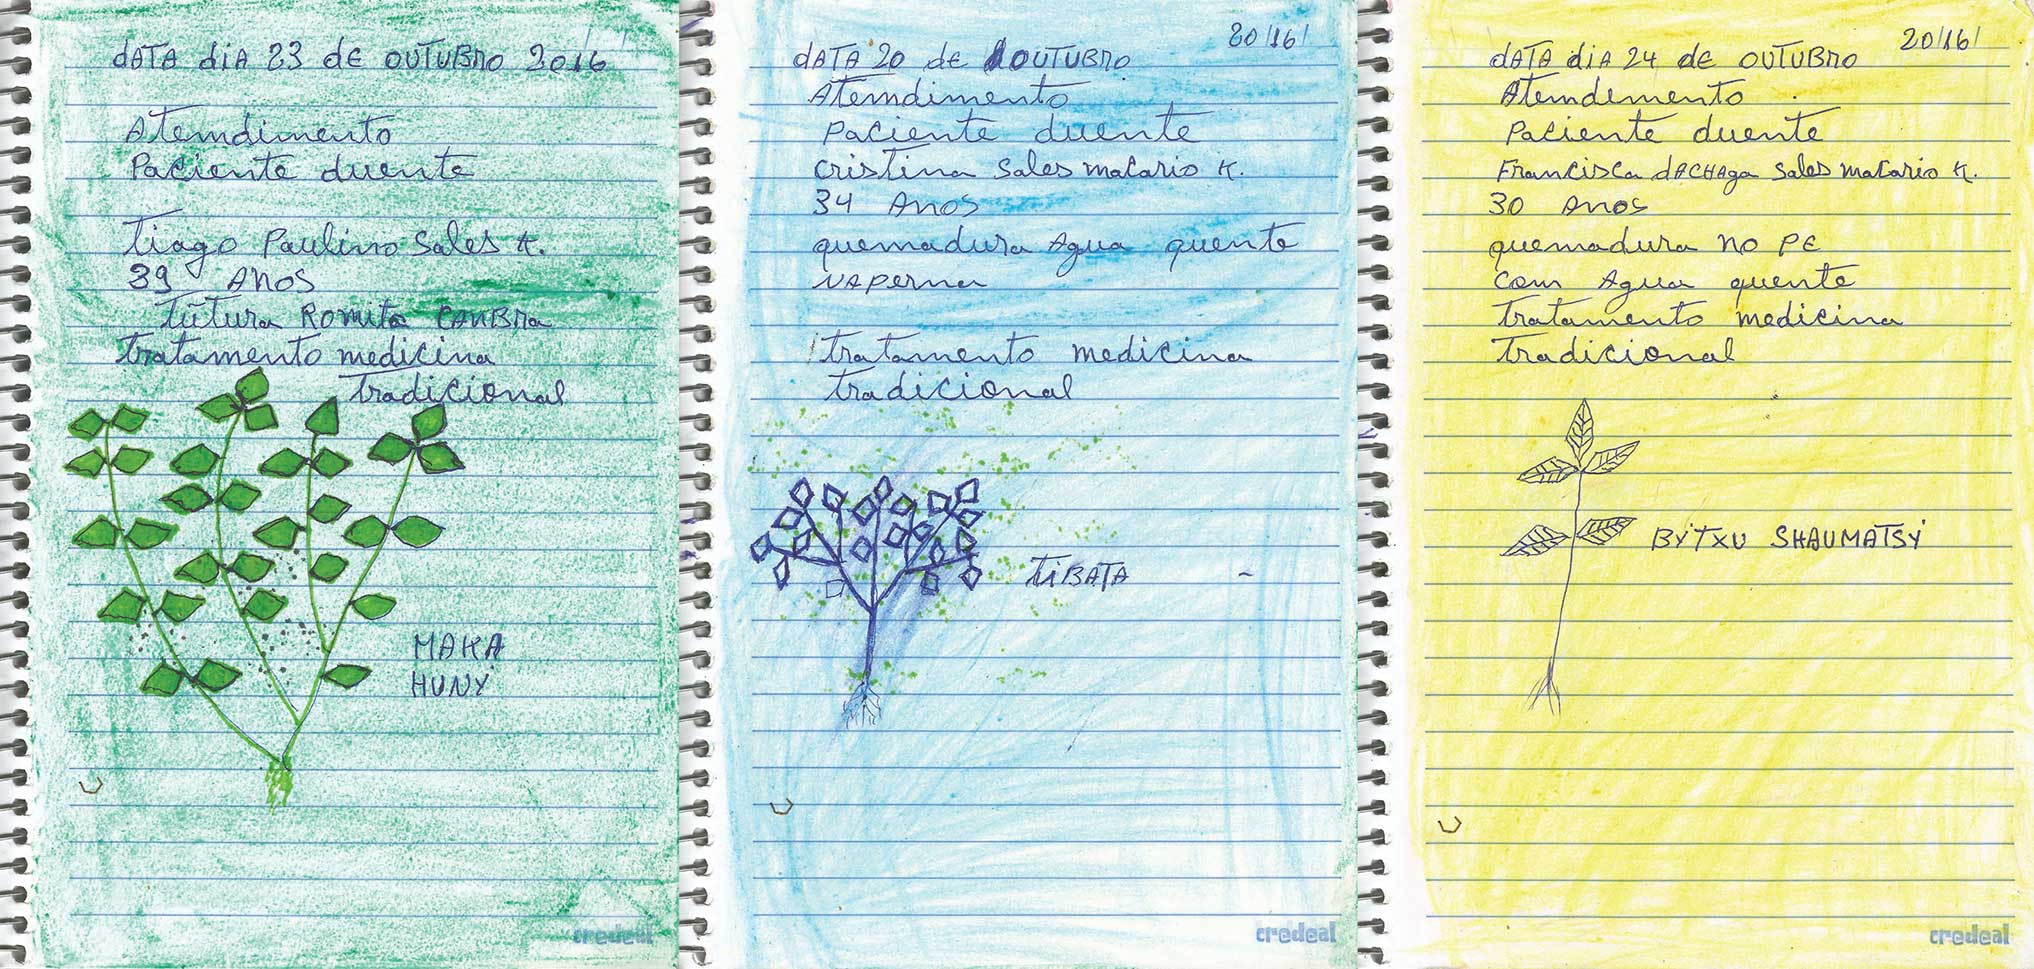 dATA diA 23 de OUTUBro 2016
Atemdimento
Paciente duente
tiago Paulino Sales K.
39 ANOS
tutura Romita CANBra
tratamento medicina
tradicional
MAKA
HUNY
credeal
20/16/
dATA 20 de OUTUBro
Atemdimento
Paciente duente
Cristina Sales macario K.
34 Anos
quemadura Agua quente
NAPerna
tratamento medicina
tradicional
tiBATA
credeal
20/16/
dATA diA 24 de OUTUBro
Atemdemento
Paciente duente
Francisca dACHAga Sales macario K.
30 Anos
quemadura NO PE
Com Agua quente
tratamento medicina
tradicional
BYTXU SHAUMATSY
credeal